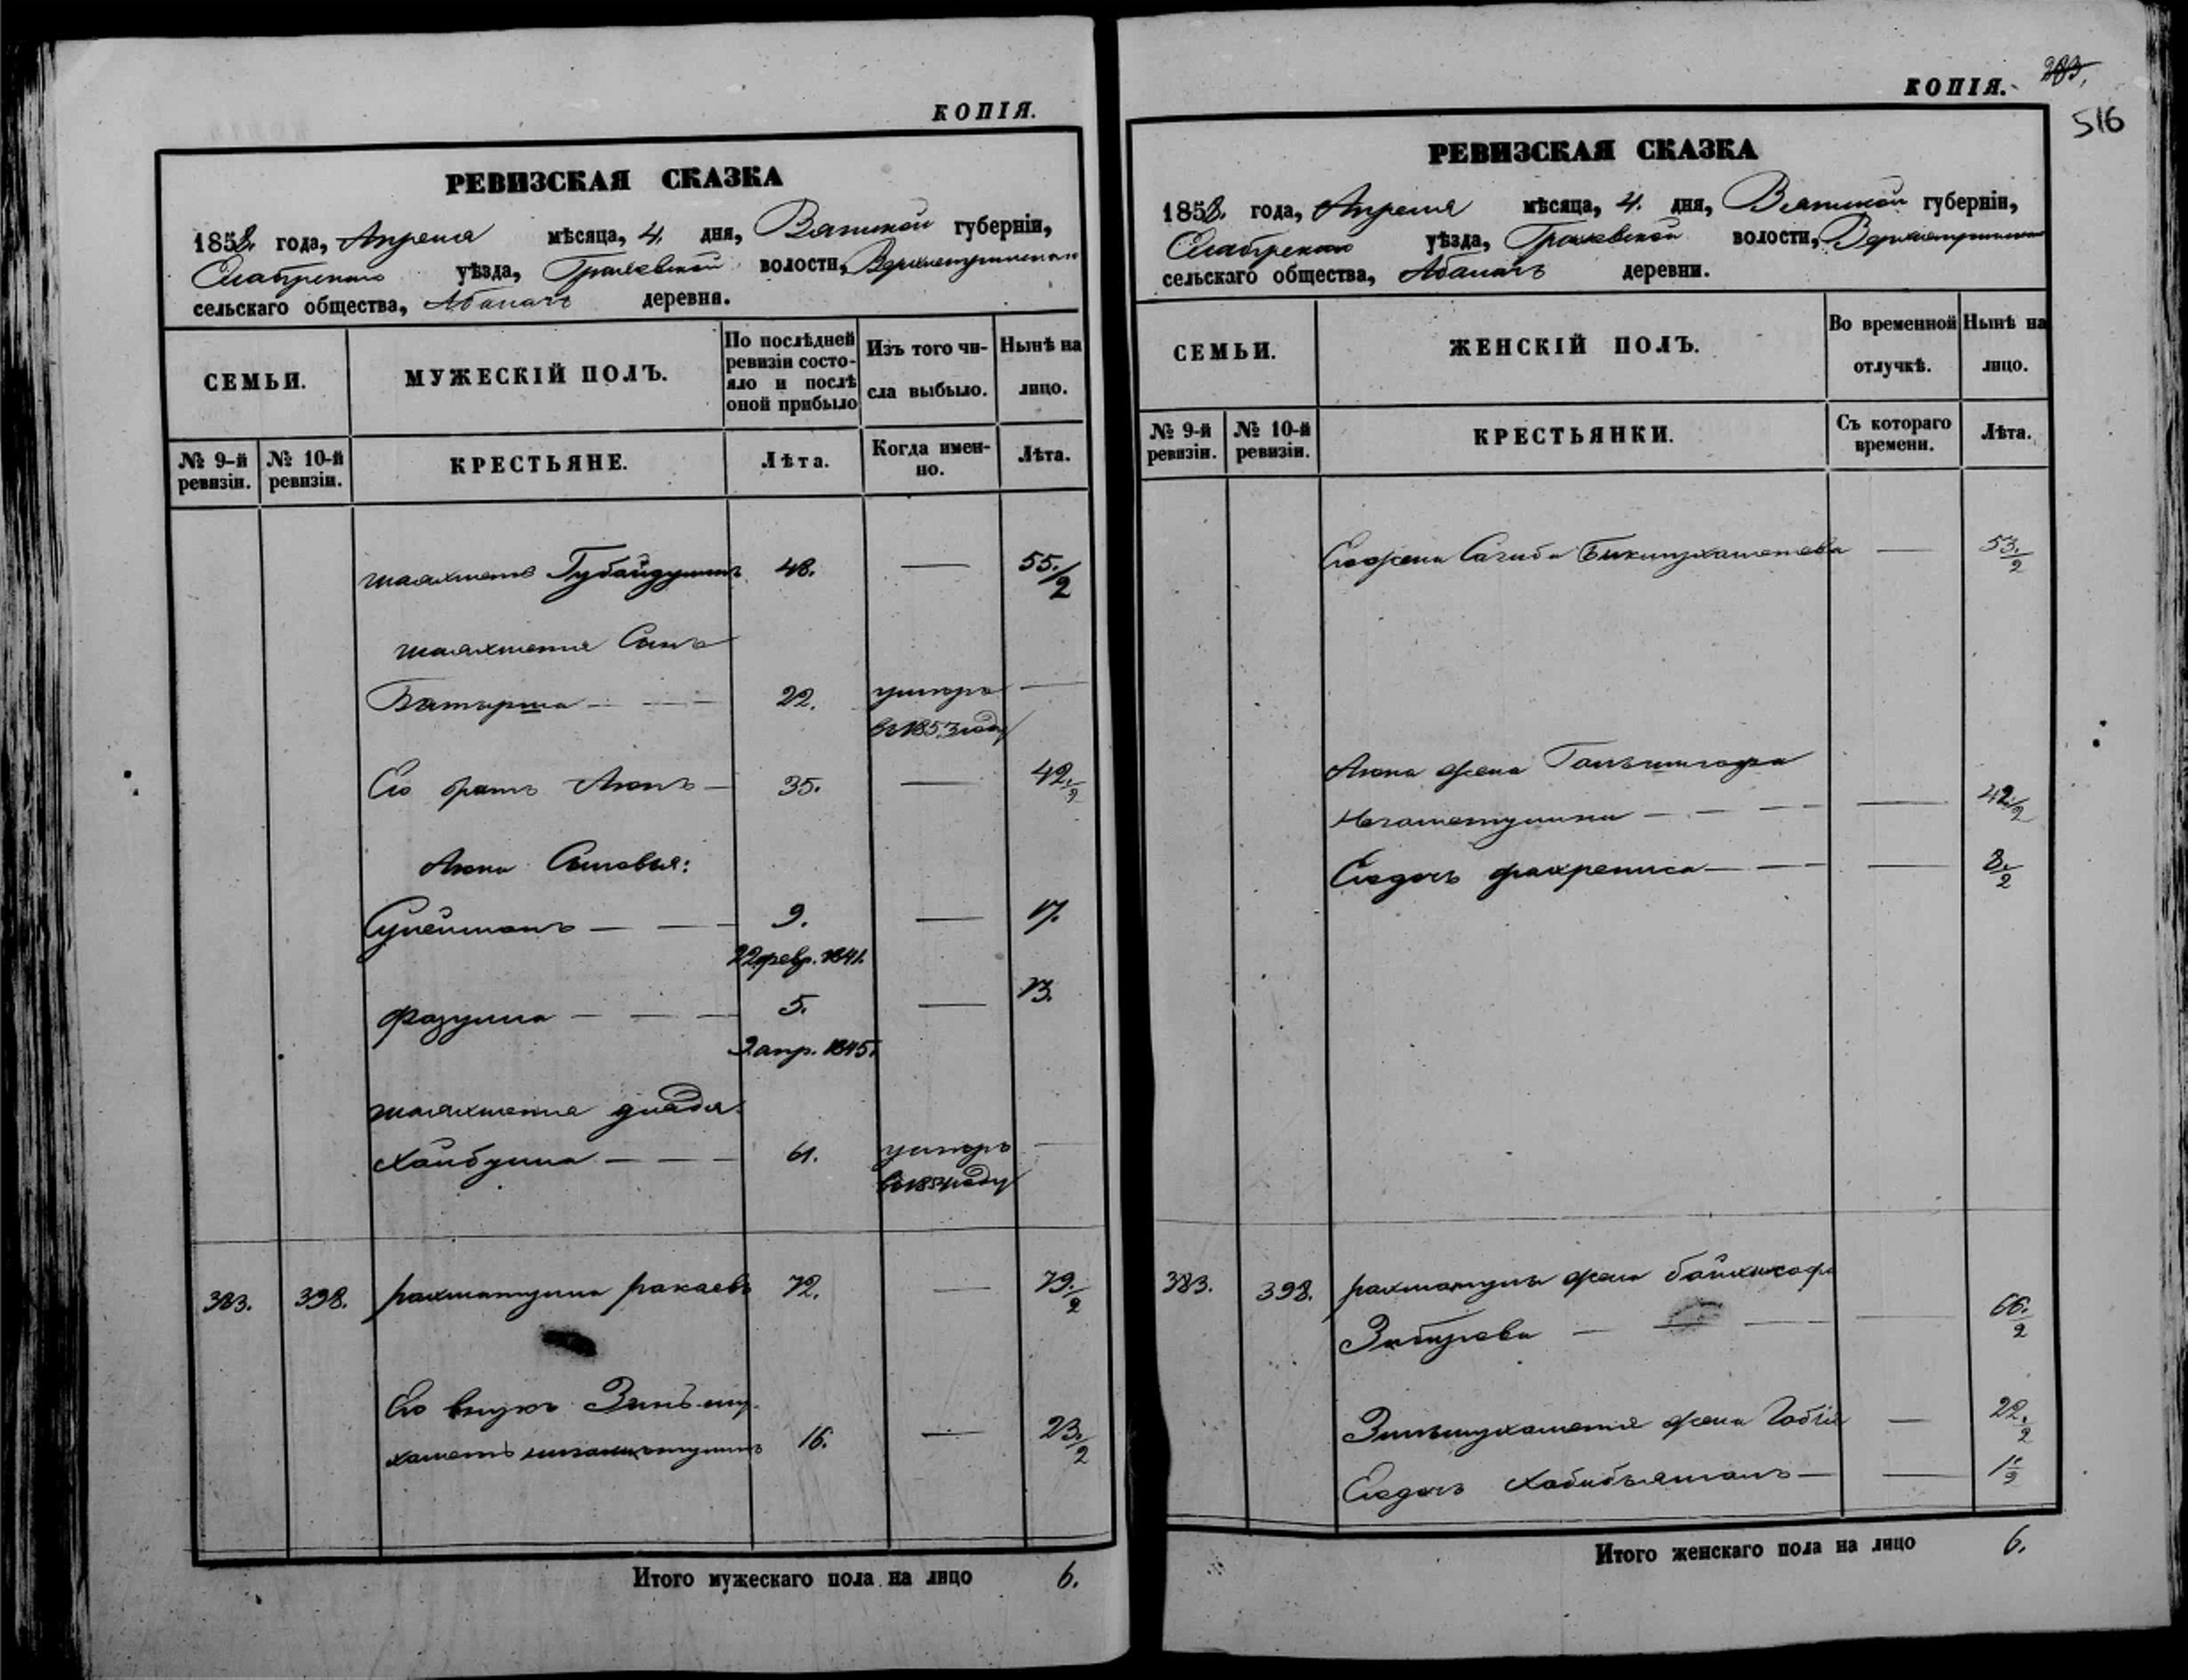 КОПІЯ.
РЕВИЗСКАЯ СКАЗКА
1858. года, Апреля мѣсяца, 4. дня, Вятской губерніи,
Елабужскаго уѣзда, Граховской волости,
сельскаго общества, деревня.
СЕМЬИ.
МУЖЕСКІЙ ПОЛЪ.
По послѣдней ревизіи состояло и послѣ оной прибыло
Изъ того числа выбыло.
Нынѣ на лицо.
№ 9-й ревизіи.
№ 10-й ревизіи.
КРЕСТЬЯНЕ.
Лѣта.
Когда именно.
Лѣта.
шаяхметъ Губайдуллинъ 48. — 55./2
шаяхметя Сынъ
Батырша — — 22. умеръ —
въ 1853 году
Его братъ Аюпъ — 35. — 42./2
Аюпа Сыновья:
Сулейманъ — — 9. — 17.
22 февр. 1841.
Фазулла — — — 5. — 13.
2 апр. 1845.
шаяхметя дядя
Хайбулла — — 61. умеръ —
году
383. 398. рахматулла ракаевъ 72. — 79./2
Его внукъ Зинъ му-
хаметъ 16. — 23./2
Итого мужескаго пола на лицо 6.
КОПІЯ.
383.
516
РЕВИЗСКАЯ СКАЗКА
1858. года, Апреля мѣсяца, 4. дня, Вятской губерніи,
Елабужскаго уѣзда, Граховской волости,
сельскаго общества, деревни.
СЕМЬИ.
ЖЕНСКІЙ ПОЛЪ.
Во временной отлучкѣ.
Нынѣ на лицо.
№ 9-й ревизіи.
№ 10-й ревизіи.
КРЕСТЬЯНКИ.
Съ котораго времени.
Лѣта.
Его жена Сагиба Бикмухаметева — 53./2
Аюпа жена
Негаметуллина — — — — 42./2
Его дочь фахрениса — — — 8./2
383. 398. рахматулы жена
— — — — 66./2
Зинъмухаметя жена — 22./2
Его дочь Хабибъямалъ — — 1/2
Итого женскаго пола на лицо 6.